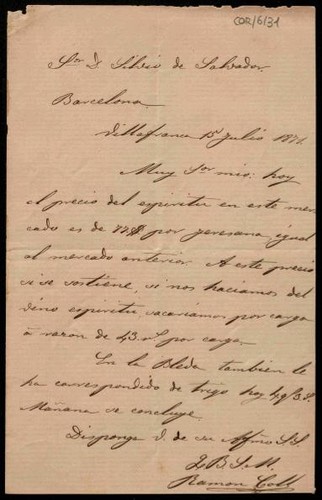 COR/6/31
Sor D. Silvio de Salvador.
Barcelona
Villafranca 15 Julio 1871.
Muy Sor mio: hoy
el precio del espiritu en este mer
cado es de 77 por jeresana, igual
al mercado anterior. A este precio
si se sostiene, si nos haciamos del
vino espiritu, sacariamos por carga
á razon de 43 por carga
En la Bleda tambien le
ha correspondido de trigo hoy
Mañana se concluye
Disponga V. de su Afmo S.S.
Q B S M.
Ramon Coll